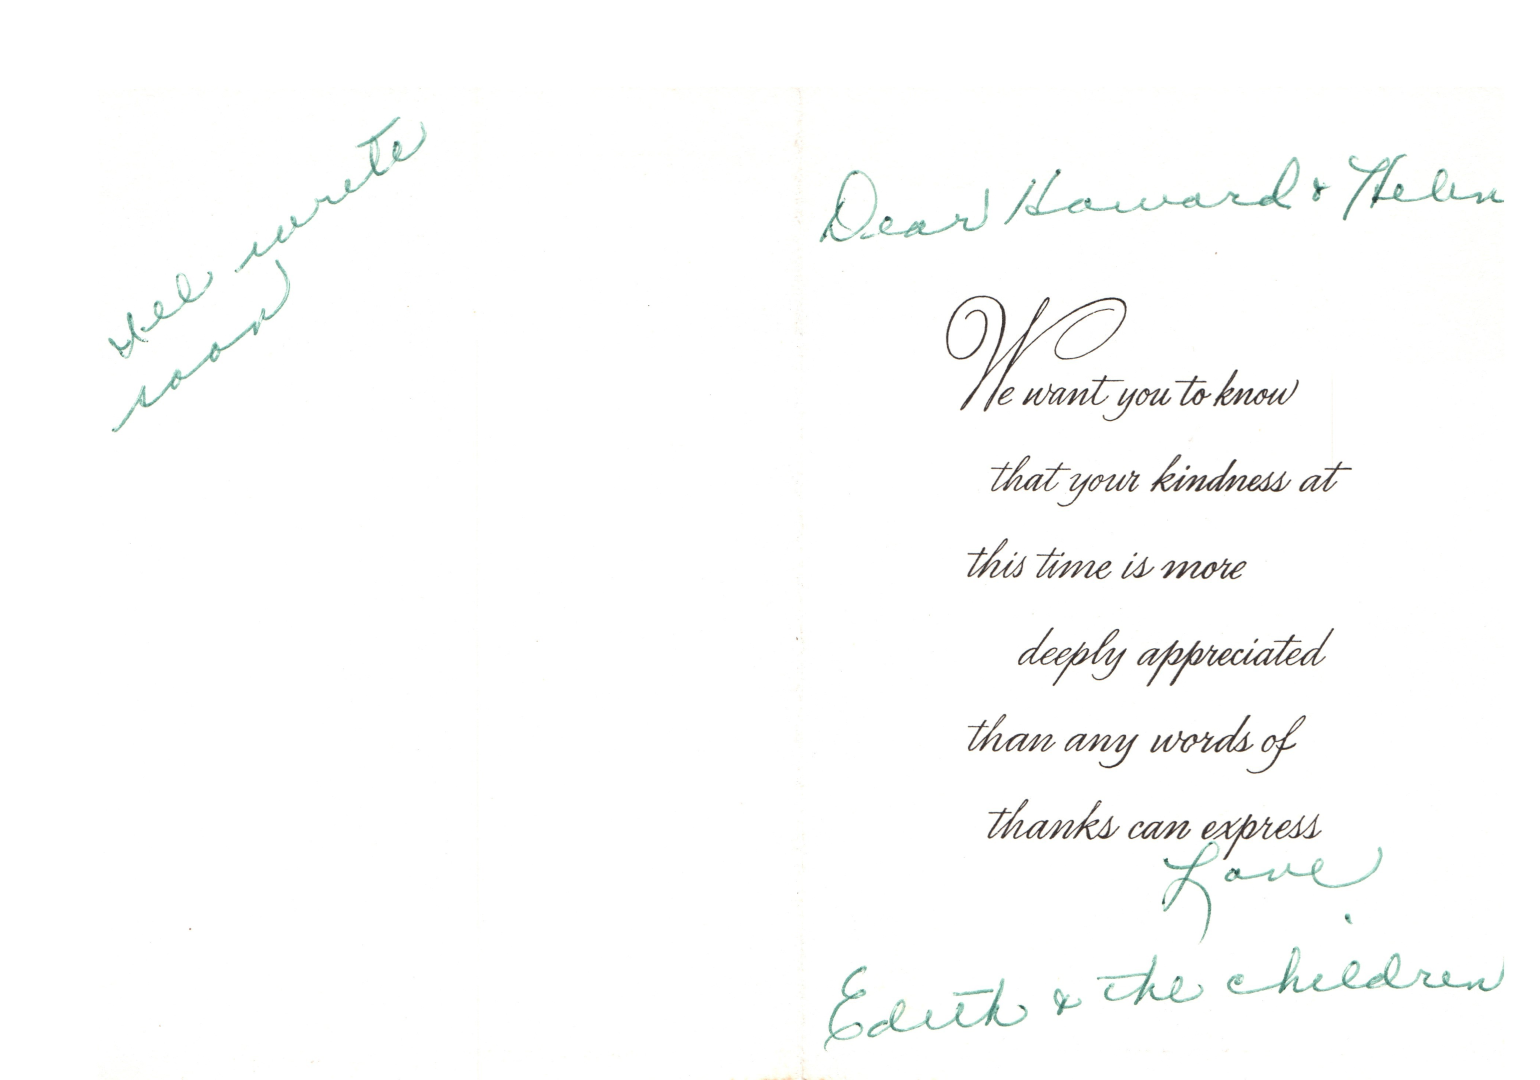 write
soon
Dear Howard & Helen
We want you to know
that your kindness at
this time is more
deeply appreciated
than any words of
thanks can express
Love
Edith & the children